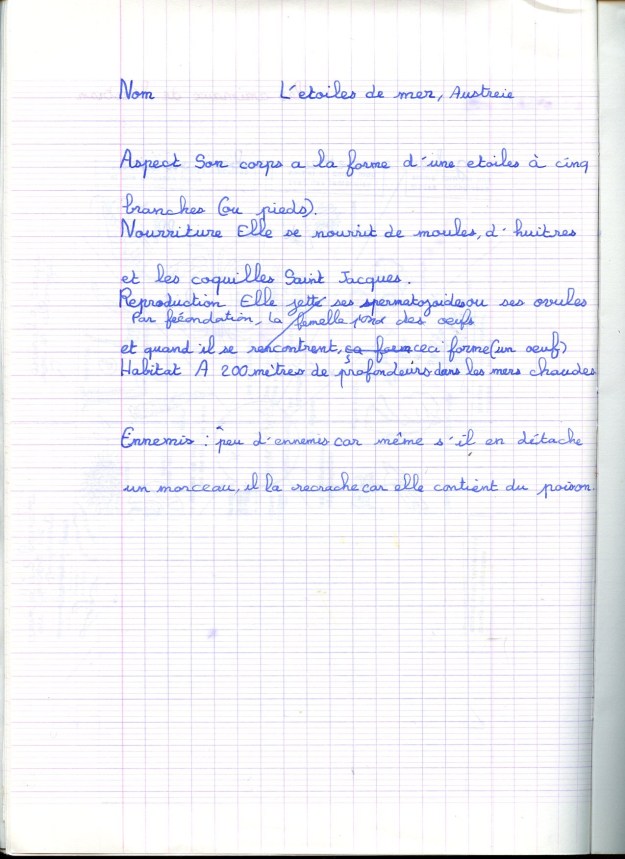 Nom L'etoiles de mer, Austreie
Aspect Son corps a la forme d'une etoiles à cinq
branches (ou pieds).
Nourriture Elle se nourrit de moules, d'huitres
et les coquilles Saint Jacques.
Reproduction Elle jette ses spermatozoides ou ses ovules
Par fécondation, la femelle pond des oeufs
et quand il se rencontrent, ça forme ceci forme (un oeuf)
Habitat A 200 mètres de profondeurs dans les mers chaudes
Ennemis : peu d'ennemis car même s'il en détache
un morceau, il la recrache car elle contient du poison.